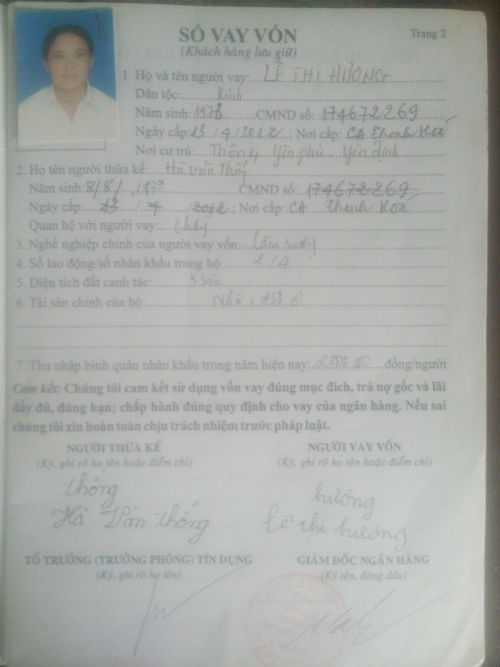 SỔ VAY VỐN
Trang 2
(Khách hàng lưu giữ)
1. Họ và tên người vay: LÊ THỊ HƯƠNG
Dân tộc: Kinh
Năm sinh: 1978 CMND số: 174672269
Ngày cấp 23 / 4 / 2012 Nơi cấp: CA Thanh Hoá
Nơi cư trú: Yên phú - Yên định
2. Họ tên người thừa kế: Hà văn Thống
Năm sinh 8/8/ CMND số: 174672269
Ngày cấp 23 4 2012 ; Nơi cấp: CA Thanh Hoá
Quan hệ với người vay:
3. Nghề nghiệp chính của người vay vốn: Làm ruộng
4. Số lao động/số nhân khẩu trong hộ 2/4
5. Diện tích đất canh tác: 3 sào
6. Tài sản chính của hộ Nhà, đất ở
7. Thu nhập bình quân nhân khẩu trong năm hiện nay: đồng/người
Cam kết: Chúng tôi cam kết sử dụng vốn vay đúng mục đích, trả nợ gốc và lãi
đầy đủ, đúng hạn; chấp hành đúng quy định cho vay của ngân hàng. Nếu sai
chúng tôi xin hoàn toàn chịu trách nhiệm trước pháp luật.
NGƯỜI THỪA KẾ NGƯỜI VAY VỐN
(Ký, ghi rõ họ tên hoặc điểm chỉ) (Ký, ghi rõ họ tên hoặc điểm chỉ)
thống hương
Hà Văn thống lê thị hương
TỔ TRƯỞNG (TRƯỞNG PHÒNG) TÍN DỤNG GIÁM ĐỐC NGÂN HÀNG
(Ký, ghi rõ họ tên) (Ký tên, đóng dấu)